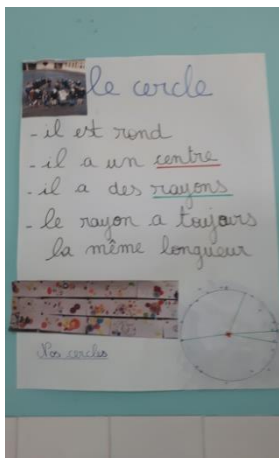 le cercle
- il est rond
- il a un centre
- il a des rayons
- le rayon a toujours
la même longueur
Nos cercles